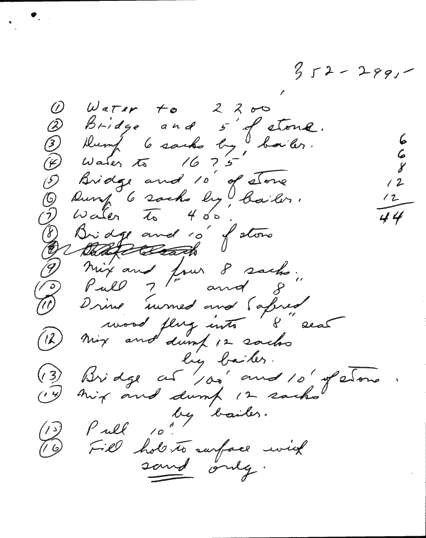 352-2991
① Water to 2200'
② Bridge and 5' of stone.
③ Dump 6 sacks by bailer. 6
④ Water to 1675' 6
8
⑤ Bridge and 10' of stone 12
⑥ Dump 6 sacks by bailer. 12
⑦ Water to 400'. 44
⑧ Bridge and 10' of stone
⑨ Mix and pour 8 sacks.
⑩ Pull 7" and 8"
⑪ Drive turned and tapered
wood plug into 8" seat
⑫ Mix and dump 12 sacks
by bailer.
⑬ Bridge at 100' and 10' of stone.
⑭ Mix and dump 12 sacks
by bailer.
⑮ Pull 10".
⑯ Fill hole to surface with
sand only.